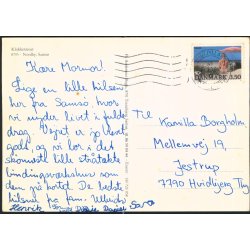 Klokketårnet
8795 - Nordby, Samsø
Kære Mormor!
Lige en lille hilsen
her fra Samsø, hvor
vi nyder livet i fulde
drag. Vejret er jo vært
godt, og vi bor i det
skønneste lille stråtækte
bindingsværkshus som
den på kortet. De bedste
hilsner fra fam. Ullerslev
Henrik Sara
DANMARK 3.50
Til
Kamilla Borgholm
Mellemvej 19,
Jestrup
7790 Hvidbjerg Thy